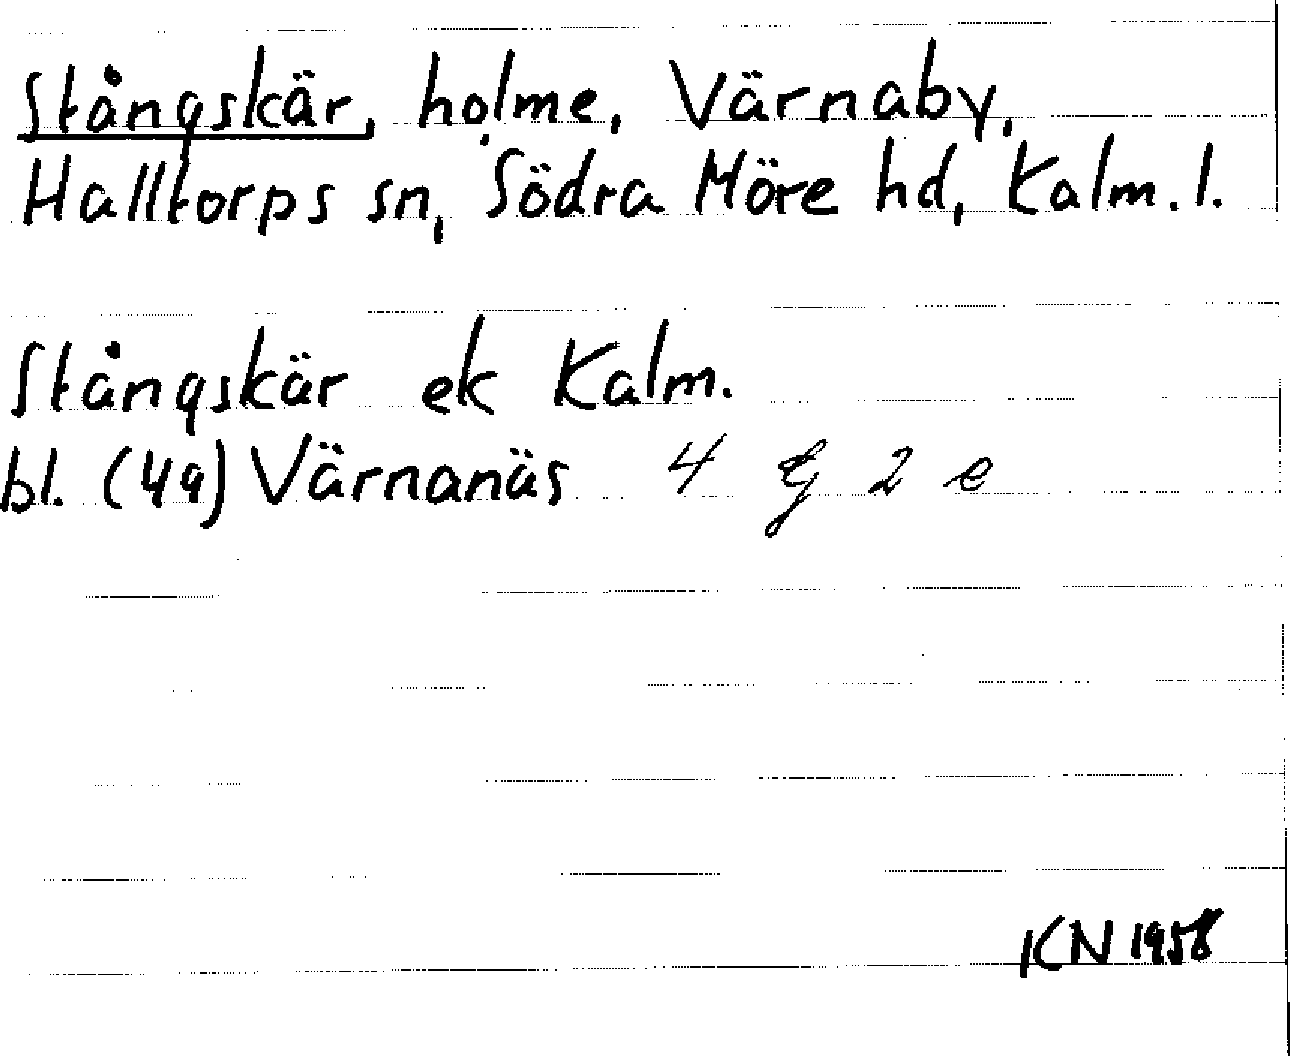 Stångskär, holme, Värnaby,
Halltorps sn, Södra Möre hd, Kalm. l.
Stångskär ek Kalm.
bl. (49) Värnanäs 4 G 2 e
KN 1958